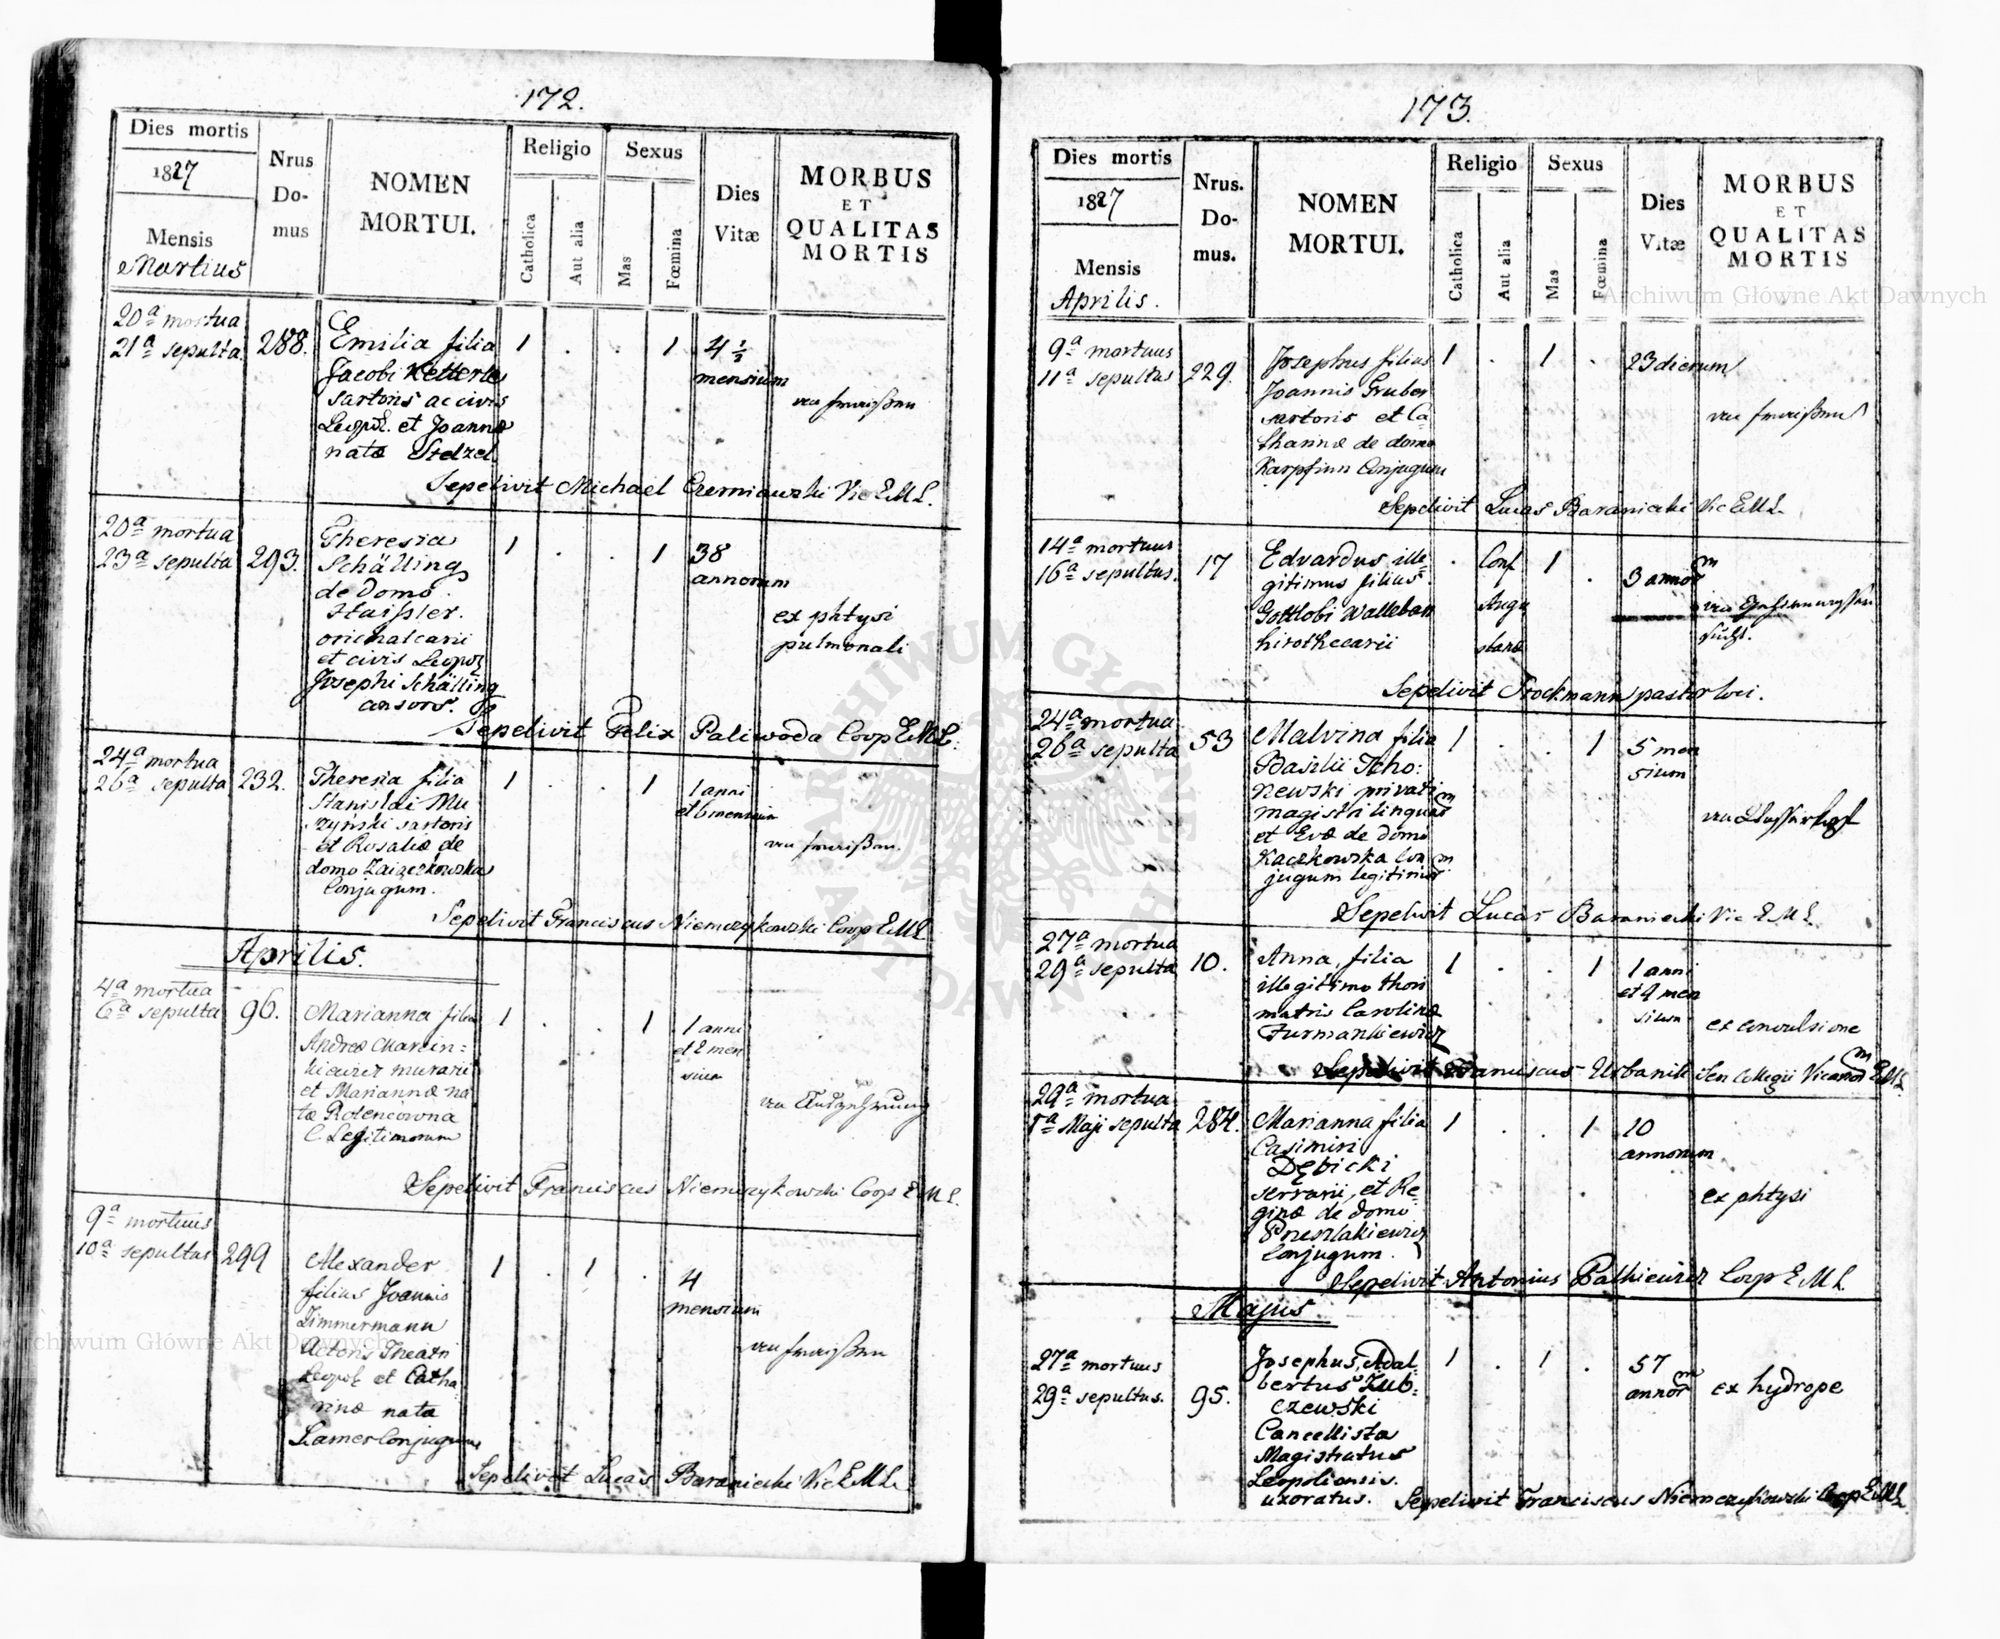 172.
Dies mortis
1827
Mensis
Martius
Nrus
Do-
mus
NOMEN
MORTUI.
Religio
Catholica
Aut alia
Sexus
Mas
Fœmina
Dies
Vitæ
MORBUS
ET
QUALITAS
MORTIS
20ª mortua
21ª sepulta
288.
Emilia filia
Jacobi Ketterle
sartoris ac civis
Leopol. et Joannæ
natæ Stelzel
1 . . 1
4 ½
mensium
von fraißen
Sepelivit Michael Czerniawski Vic E.M.L.
20ª mortua
23ª sepulta
293.
Theresia
Schälling
de Domo
Staissler.
orichalcarii
et civis Leopol
Josephi Schälling
consors.
1 . . 1
38
annorum
ex phtysi
pulmonali
Sepelivit Felix Paliwoda Coop E.M.L.
24ª mortua
26ª sepulta
232.
Theresia filia
Stanislai Mu
szyński sartoris
et Rosaliæ de
domo Zaiączkowska
Conjugum.
1 . . 1
1 anni
et 6 mensium
von fraißen.
Sepelivit Franciscus Niemczykowski Coop E.M.L
Aprilis.
4ª mortua
6ª sepulta
96.
Marianna filia
Andreæ Marcin=
kiewicz murarii
et Mariannæ na
tæ
C. Legitimorum
1 . . 1
1 anni
et 2 men
sium
von Auszehrung
Sepelivit Franciscus Niemczykowski Coop E.M.L.
9ª mortuus
10ª sepultus
299
Alexander
filius Joannis
Zimmermann
Actoris Theatri
Leopol et Catha
rinæ nata
Conjugum
1 . 1 .
4
mensium
von fraißen
Sepelivit Lucas Baraniecki Vic E.M.L.
173.
Dies mortis
1827
Mensis
Aprilis.
Nrus.
Do-
mus.
NOMEN
MORTUI.
Religio
Catholica
Aut alia
Sexus
Mas
Fœmina
Dies
Vitæ
MORBUS
ET
QUALITAS
MORTIS
9ª mortuus
11ª sepultus
229.
Josephus filius
Joannis Gruber
sartoris et Ca
tharinæ de domo
Karpfinn Conjugum
1 . 1 .
23 dierum
von fraißen
Sepelivit Lucas Baraniecki Vic E.M.L.
14ª mortuus
16ª sepultus.
17
Edvardus ille-
gitimus filius
Gottlobi
hirothecarii
. Conf
Augu
stanæ
1 .
3 annorᵐ
sucht.
Sepelivit Stockmann pastor loci.
24ª mortua
26ª sepulta
53
Malvina filia
Basilii Tcho:
newski privati
magistri linguarᵐ
et Evæ de domo
Kaczkowska Con
jugum legitimorᵐ
1 . . 1
5 men
sium
von Wasserkopf
Sepelivit Lucas Baraniecki Vic E.M.L
27ª mortua
29ª sepulta
10.
Anna, filia
illegitimo thori
matris Carolinæ
Furmankiewicz
1 . . 1
1 anni
et 4 men
sium
ex convulsione
Sepelivit Franciscus Urbanik Sen Collegii Vicariorᵐ E.M.L
29ª mortua
1ª Maji sepulta
284.
Marianna filia
Casimiri
Dębicki
serrarii, et Re-
ginæ de domo
Preszlakiewicz
Conjugum.
1 . . 1
10
annorum
ex phtysi
Sepelivit Antonius Pathiewicz Coop E.M.L.
Majus
27ª mortuus
29ª sepultus.
95.
Josephus, Adal-
bertus Zub-
czewski
Cancellista
Magistratus
Leopoliensis.
uxoratus.
1 . 1 .
57
annorᵐ
ex hydrope
Sepelivit Franciscus Niemczykowski Coop E.M.L.
Archiwum Główne Akt Dawnych
Archiwum Główne Akt Dawnych
ARCHIWUM GŁÓWNE
AKT DAWNYCH